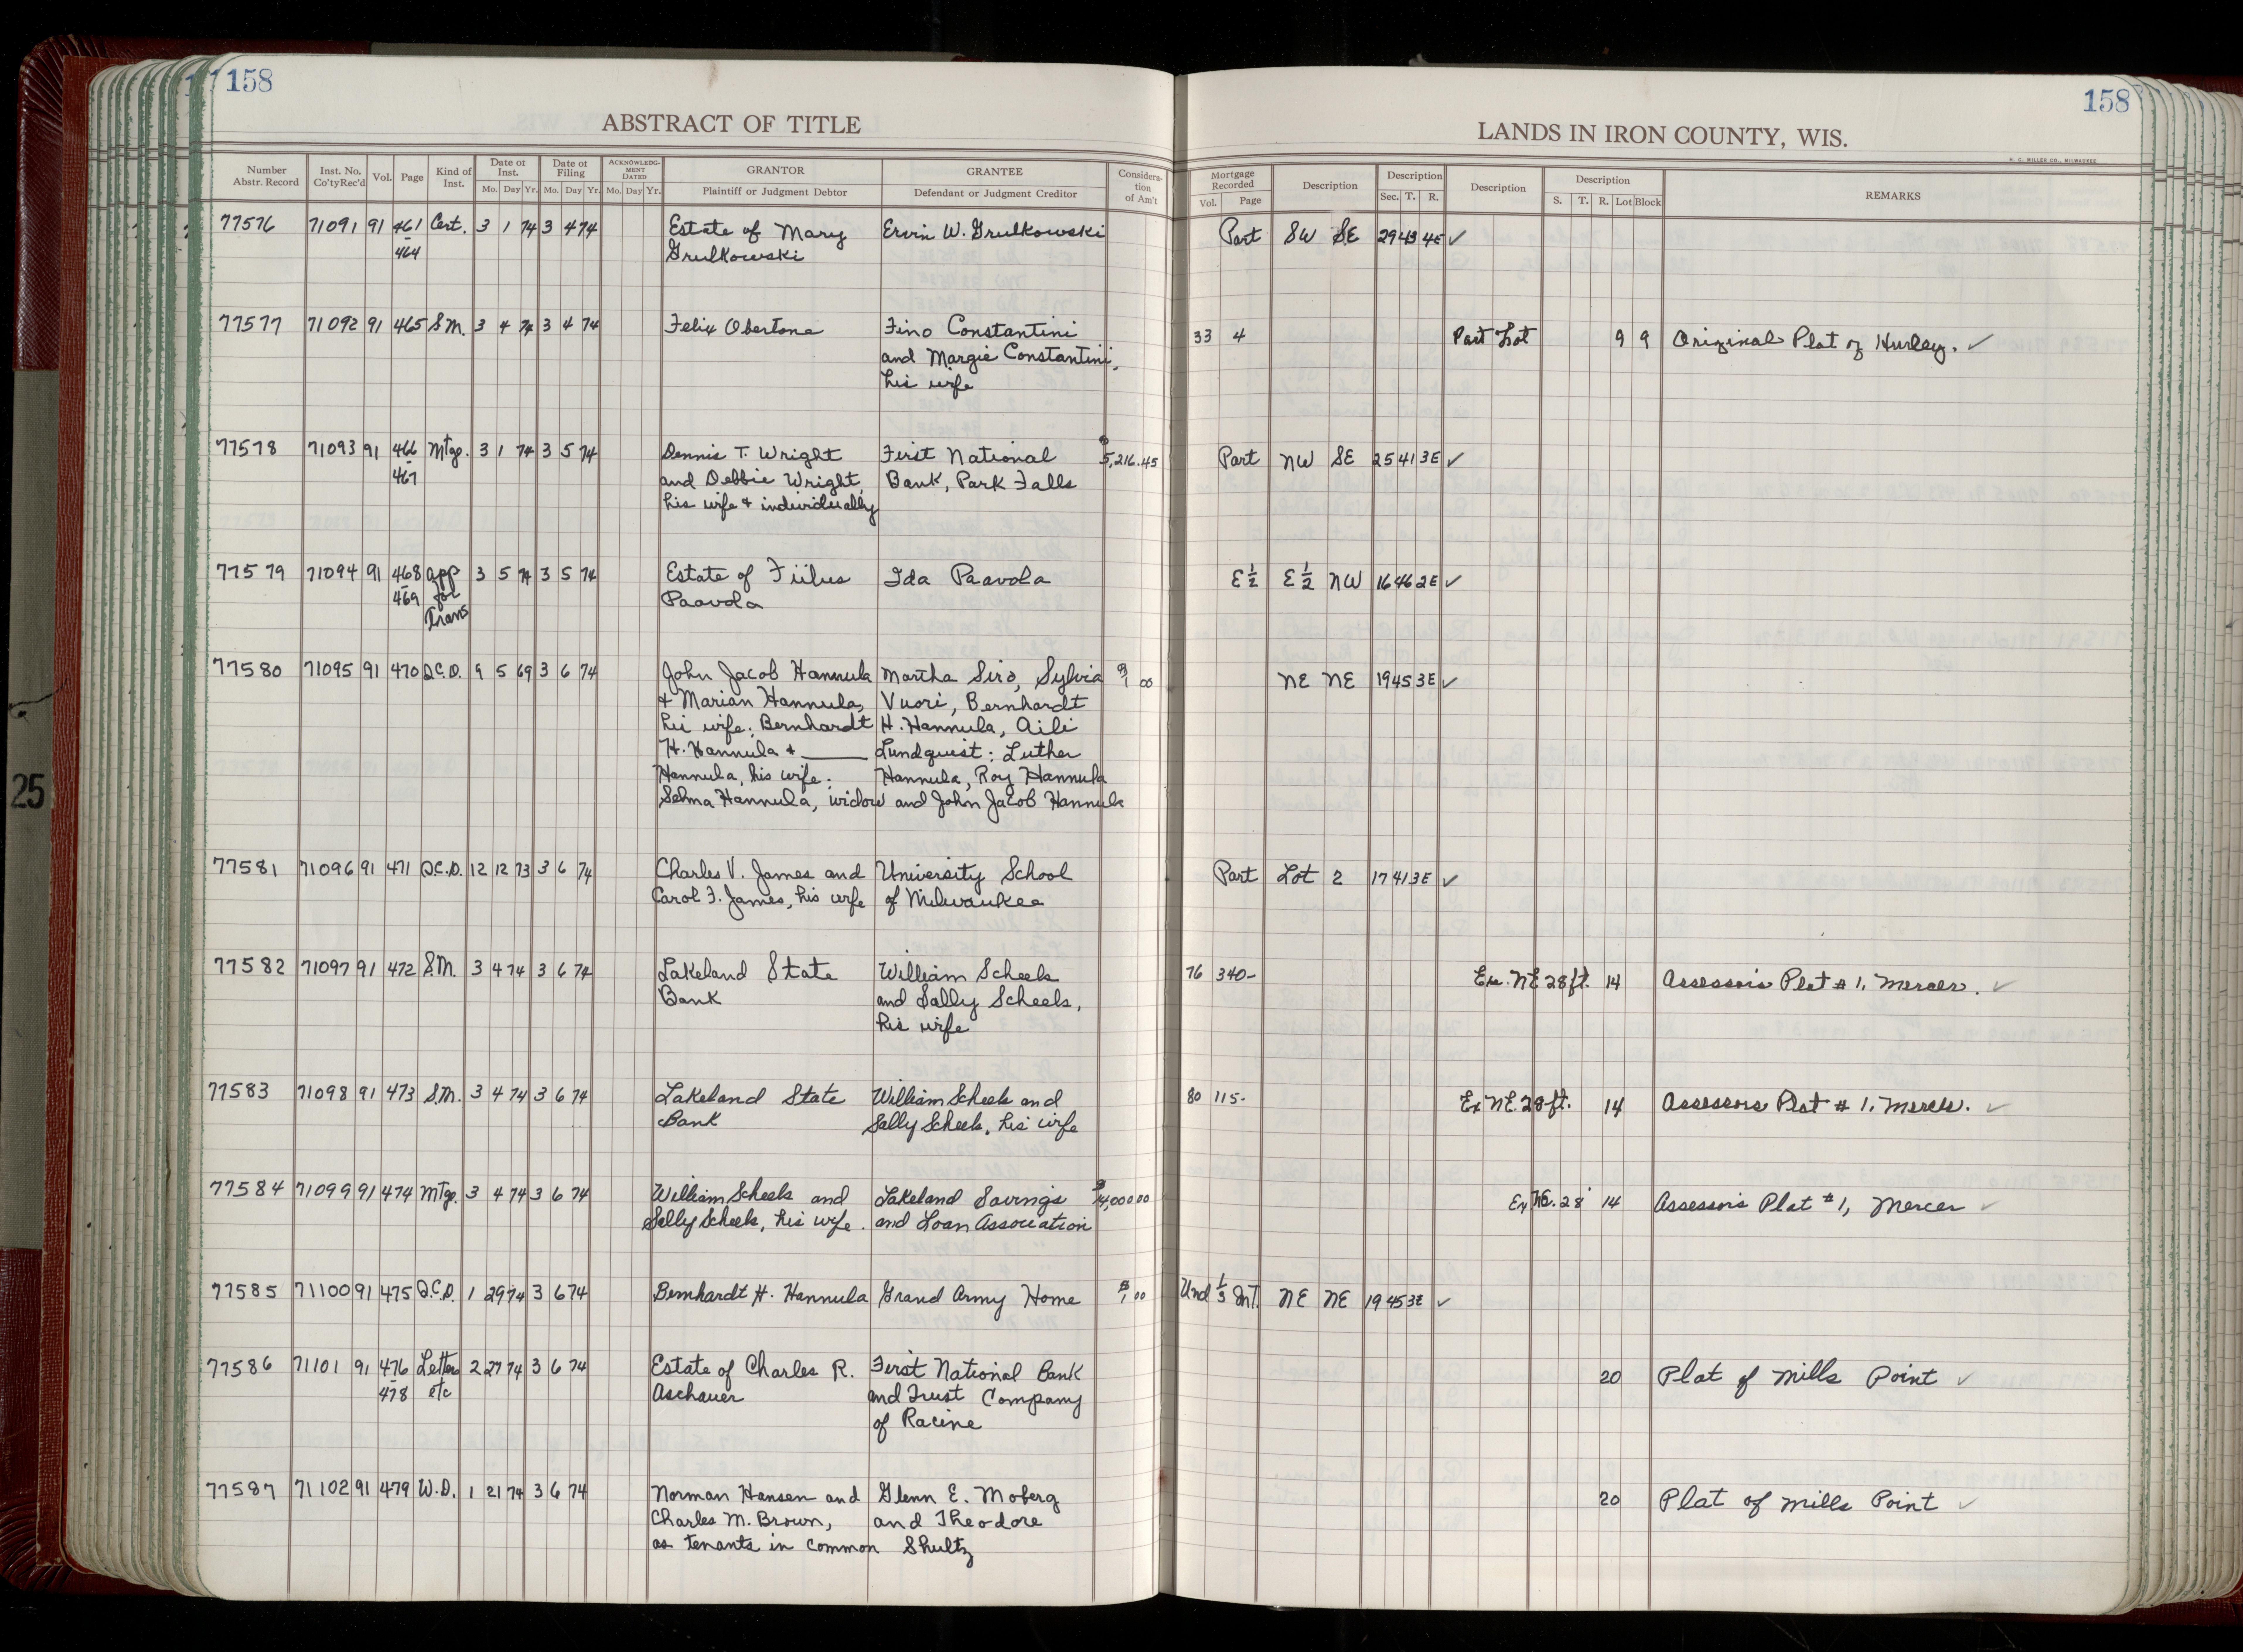 158
158
ABSTRACT OF TITLE
LANDS IN IRON COUNTY, WIS.
H. C. MILLER CO., MILWAUKEE
Number Abstr. Record Inst. No. Co'ty Rec'd Vol. Page Kind of Inst. Date of Inst. Mo. Day Yr. Date of Filing Mo. Day Yr. ACKNOWLEDG-MENT DATED Mo. Day Yr. GRANTOR Plaintiff or Judgment Debtor GRANTEE Defendant or Judgment Creditor Considera-tion of Am't
Mortgage Recorded Vol. Page Description Description Sec. T. R. Description Description S. T. R. Lot Block REMARKS
77576 71091 91 461 Cert. 3 1 74 3 4 74 Estate of Mary Ervin W. Grulkowski Part SW SE 29 43 4E ✓
- 464 Grulkowski
77577 71092 91 465 S.M. 3 4 74 3 4 74 Felix Obertone Fino Constantini 33 4 Part Lot 9 9 Original Plat of Hurley. ✓
and Margie Constantini,
his wife
77578 71093 91 466 Mtge. 3 1 74 3 5 74 Dennis T. Wright First National $5,216.45 Part NW SE 25 41 3E ✓
- 467 and Debbie Wright, Bank, Park Falls
his wife + individually
77579 71094 91 468 App 3 5 74 3 5 74 Estate of Fiilus Ida Paavola E½ E½ NW 16 46 2E ✓
- 469 for Paavola
Trans
77580 71095 91 470 Q.C.D. 9 5 69 3 6 74 John Jacob Hannula Martha Siro, Sylvia $1 00 NE NE 19 45 3E ✓
+ Marian Hannula, Vuori, Bernhardt
his wife; Bernhardt H. Hannula, Aili
H. Hannula + ____ Lundquist: Luther
Hannula, his wife: Hannula, Roy Hannula
Selma Hannula, widow and John Jacob Hannula
77581 71096 91 471 Q.C.D. 12 12 73 3 6 74 Charles V. James and University School Part Lot 2 17 41 3E ✓
Carol F. James, his wife of Milwaukee
77582 71097 91 472 S.M. 3 4 74 3 6 74 Lakeland State William Scheels 76 340- Exc. NE 28 ft. 14 Assessor's Plat # 1, Mercer. ✓
Bank and Sally Scheels,
his wife
77583 71098 91 473 S.M. 3 4 74 3 6 74 Lakeland State William Scheels and 80 115- Ex NE. 28 ft. 14 Assessors Plat # 1, Mercer. ✓
Bank Sally Scheels, his wife
77584 71099 91 474 Mtge. 3 4 74 3 6 74 William Scheels and Lakeland Savings $14,000.00 Ex NE. 28' 14 Assessor's Plat #1, Mercer ✓
Sally Scheels, his wife. and Loan Association
77585 71100 91 475 Q.C.D. 1 29 74 3 6 74 Bernhardt H. Hannula Grand Army Home $1 00 Und ⅓ Int. NE NE 19 45 3E ✓
77586 71101 91 476 Letters 2 27 74 3 6 74 Estate of Charles R. First National Bank 20 Plat of Mills Point ✓
- 478 etc Aschauer and Trust Company
of Racine
77587 71102 91 479 W.D. 1 21 74 3 6 74 Norman Hansen and Glenn E. Moberg 20 Plat of Mills Point ✓
Charles M. Brown, and Theodore
as tenants in common Shultz
25